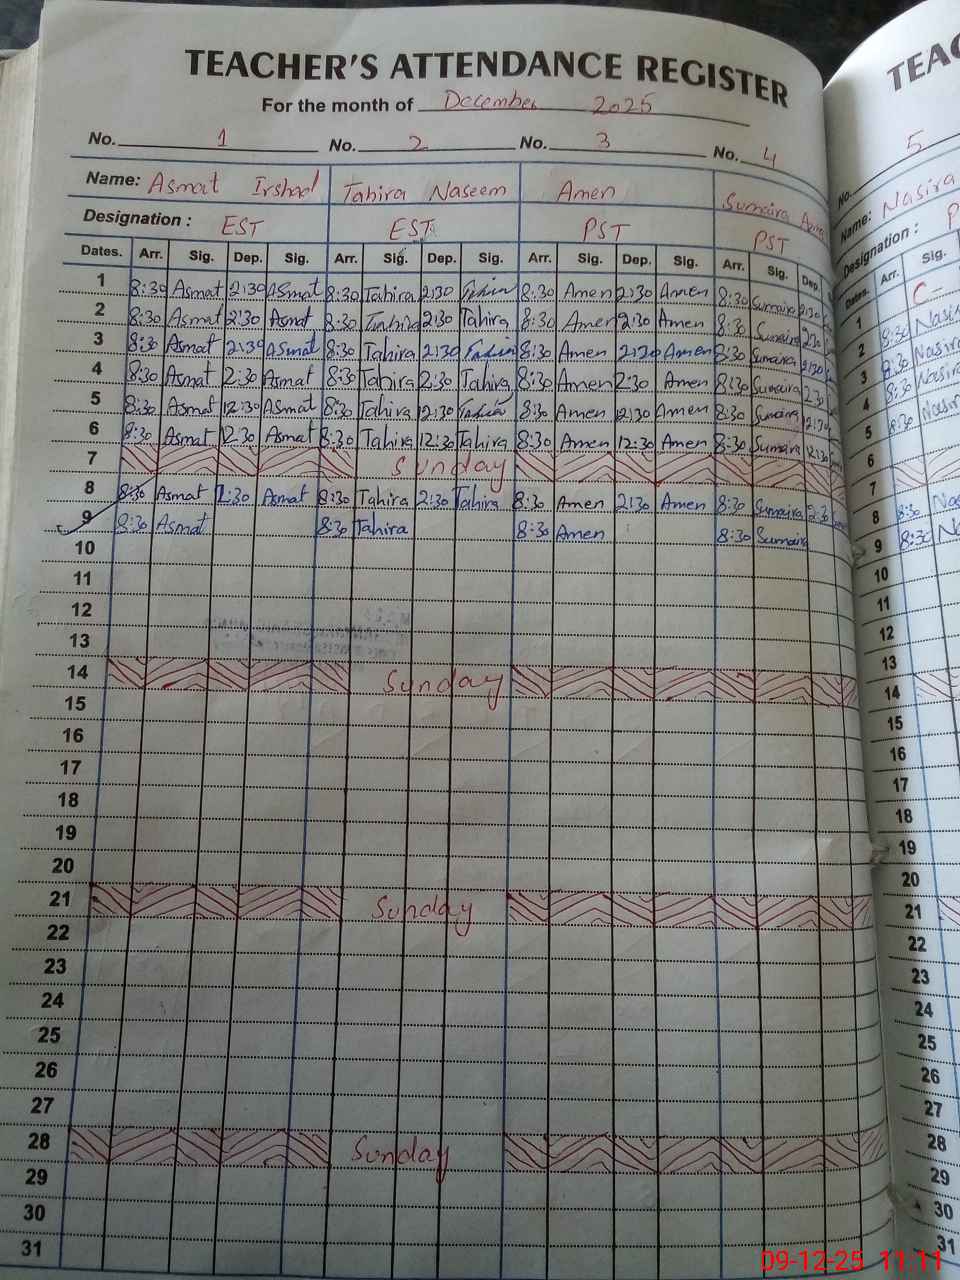 TEACHER'S ATTENDANCE REGISTER
For the month of December 2025
No. 1 No. 2 No. 3 No. 4
Name: Asmat Irshad Tahira Naseem Amen Sumaira
Designation : EST EST PST PST
Dates. Arr. Sig. Dep. Sig. Arr. Sig. Dep. Sig. Arr. Sig. Dep. Sig. Arr. Sig. Dep
1 8:30 Asmat 2:30 Asmat 8:30 Tahira 2:30 Tahira 8:30 Amen 2:30 Amen 8:30 Sumaira 2:30
2 8:30 Asmat 2:30 Asmat 8:30 Tahira 2:30 Tahira 8:30 Amen 2:30 Amen 8:30 Sumaira 2:30
3 8:30 Asmat 2:30 Asmat 8:30 Tahira 2:30 Tahira 8:30 Amen 2:30 Amen 8:30 Sumaira 2:30
4 8:30 Asmat 2:30 Asmat 8:30 Tahira 2:30 Tahira 8:30 Amen 2:30 Amen 8:30 Sumaira 2:30
5 8:30 Asmat 12:30 Asmat 8:30 Tahira 12:30 Tahira 8:30 Amen 12:30 Amen 8:30 Sumaira 12:30
6 8:30 Asmat 12:30 Asmat 8:30 Tahira 12:30 Tahira 8:30 Amen 12:30 Amen 8:30 Sumaira 12:30
7 Sunday
8 8:30 Asmat 2:30 Asmat 8:30 Tahira 2:30 Tahira 8:30 Amen 2:30 Amen 8:30 Sumaira 2:30
9 8:30 Asmat 8:30 Tahira 8:30 Amen 8:30 Sumaira
10
11
12
13
14 Sunday
15
16
17
18
19
20
21 Sunday
22
23
24
25
26
27
28 Sunday
29
30
31
5
No.
Name: Nasira
Designation :
Dates. Arr. Sig.
1 C-
2 8:30
3 8:30 Nasira
4 8:30 Nasira
5 8:30
6
7
8 8:30
9 8:30
10
11
12
13
14
15
16
17
18
19
20
21
22
23
24
25
26
27
28
29
30
31
09-12-25 11:11